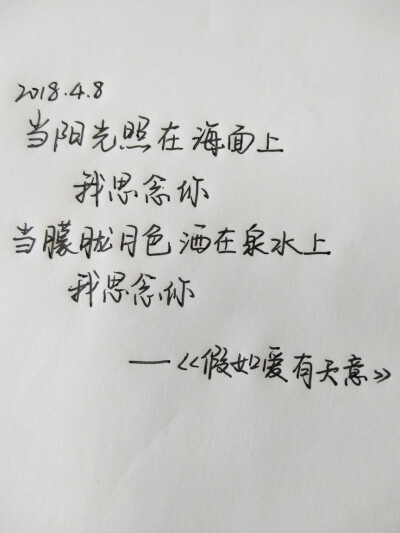 2018.4.8
当阳光照在海面上
我思念你
当朦胧月色洒在泉水上
我思念你
——《假如爱有天意》